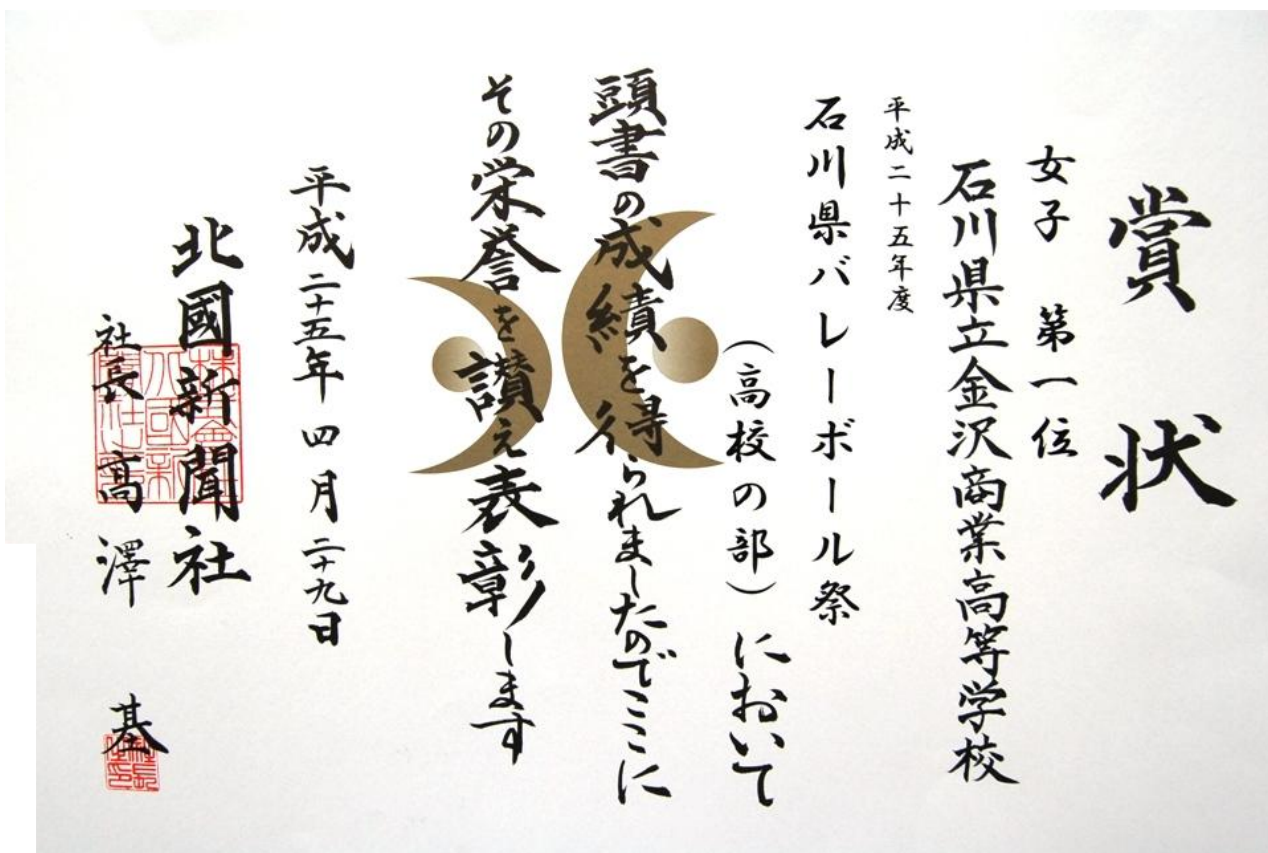 賞状
女子 第一位
石川県立金沢商業高等学校
平成二十五年度
石川県バレーボール祭
(高校の部)において
頭書の成績を得られましたのでここに
その栄誉を讃え表彰します
平成二十五年四月二十九日
北國新聞社
社長 高澤 基